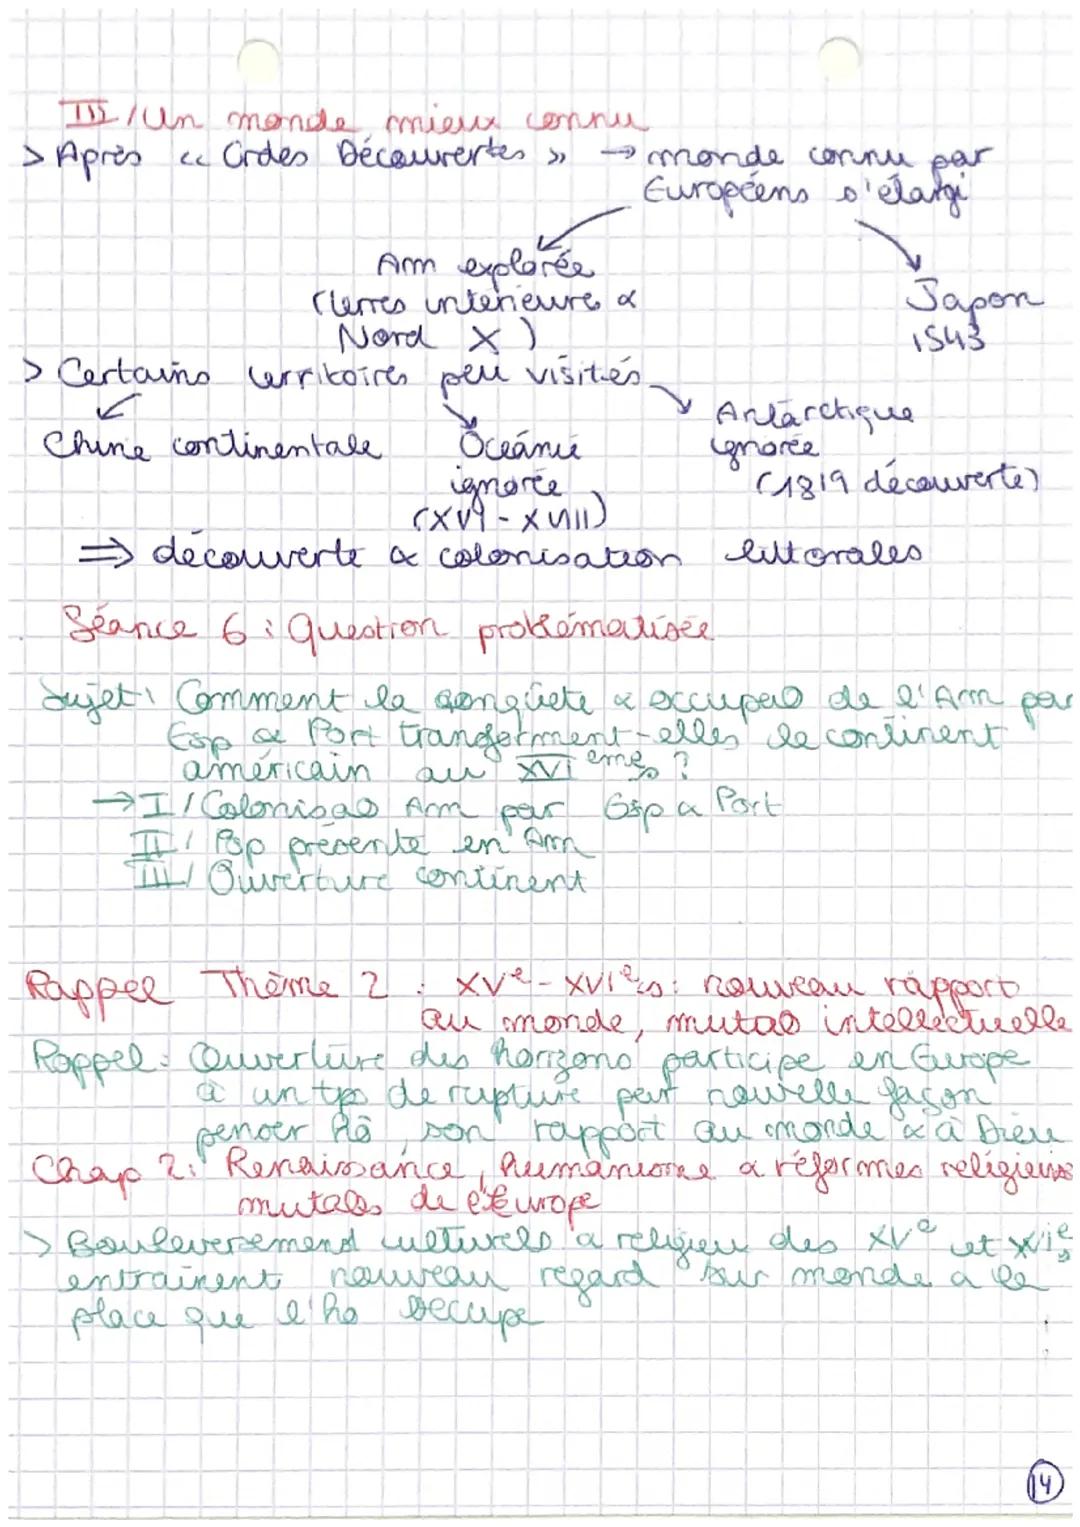 III / Un monde mieux connu
> Après « Grdes Découvertes » → monde connu par
Européens s'élargi
Am explorée
(terres intérieures &
Nord X)
Japon
1543
> Certains territoires peu visités
Chine continentale
Océanie
ignorée
(XVI - XVIII)
Antarctique
ignorée
(1819 découverte)
⇒ découverte & colonisation littorales
Séance 6 : Question problématisée
Sujet : Comment la conquête & occupa° de l'Am par
Esp & Port transforment-elles le continent
américain au XVIème s ?
→ I / Colonisa° Am par Esp & Port
II / Pop présente en Am
III / Ouverture continent
Rappel Thème 2 : XVe - XVIe s : nouveau rapport
au monde, muta° intellectuelle
Rappel : Ouverture des horizons participe en Europe
à un tps de rupture pour nouvelle façon
penser hô, son rapport au monde & à Dieu
Chap 2 : Renaissance, humanisme & réformes religieuses
muta°s de l'Europe
> Bouleversemend culturels & religieu des XVe et XVIe s
entraînent nouveau regard sur monde & la
place que l'ho occupe
14